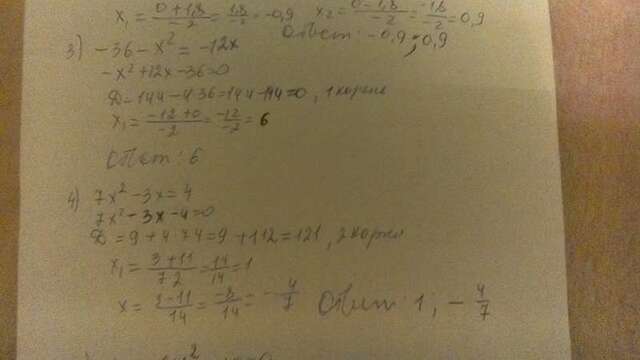 x₁ = (0+1,8)/(-2) = 1,8/(-2) = -0,9 x₂ = (0-1,8)/(-2) = (-1,8)/(-2) = 0,9
Ответ: -0,9; 0,9
3) -36 - x² = -12x
-x² + 12x - 36 = 0
D = 144 - 4·36 = 144 - 144 = 0, 1 корень
x₁ = (-12+0)/(-2) = (-12)/(-2) = 6
Ответ: 6
4) 7x² - 3x = 4
7x² - 3x - 4 = 0
D = 9 + 4·7·4 = 9 + 112 = 121, 2 корня
x₁ = (3+11)/(7·2) = 14/14 = 1
x = (3-11)/14 = (-8)/14 = -4/7 Ответ: 1; -4/7